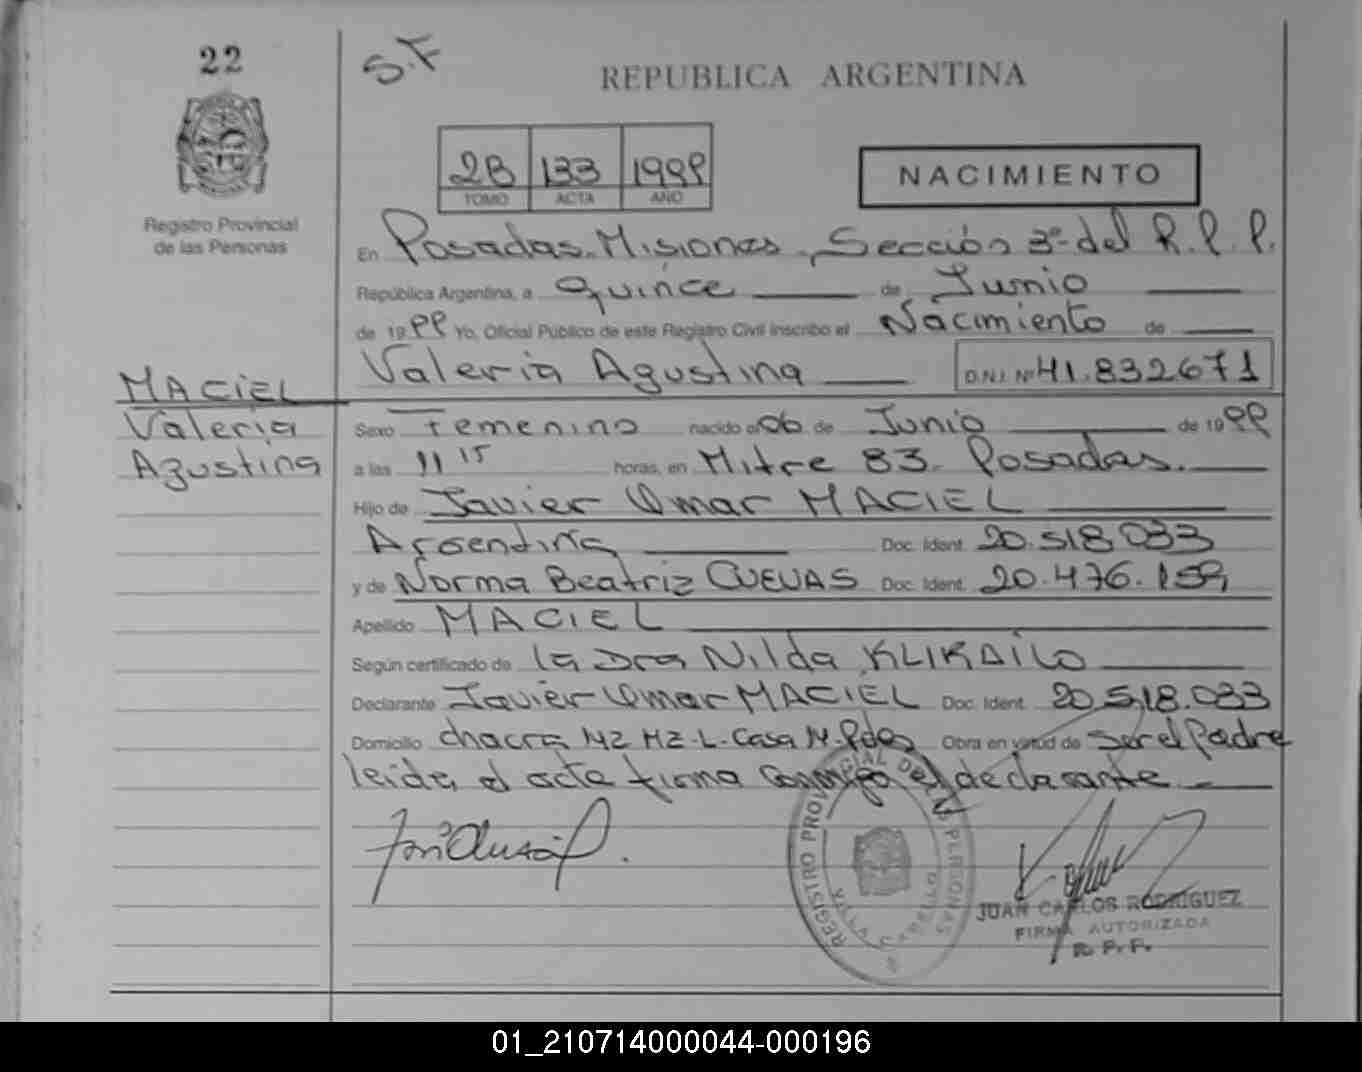 22
S.F
REPUBLICA ARGENTINA
2B 133 1999
TOMO ACTA AÑO
NACIMIENTO
Registro Provincial
de las Personas
En Posadas. Misiones, Sección 3º del R.P.P.
República Argentina, a quince de Junio
de 1999 Yo, Oficial Público de este Registro Civil inscribo el Nacimiento de
Valeria Agustina D.N.I. Nº 41.832671
MACIEL
Valeria
Agustina
Sexo Femenino nacido el 06 de Junio de 1999
a las 11 15 horas, en Mitre 83. Posadas.
Hijo de Javier Omar MACIEL
Argentina Doc. Ident. 20.518.033
y de Norma Beatriz CUEVAS Doc. Ident. 20.476.159
Apellido MACIEL
Según certificado de la Dra Nilda KLIKAILO
Declarante Javier Omar MACIEL Doc. Ident. 20.518.033
Domicilio chacra 142 MZ-L-Casa Pdas Obra en virtud de Ser el Padre
leida el acta firma conmigo el declarante
REGISTRO PROVINCIAL DE LAS PERSONAS
VILLA CABELLO
JUAN CARLOS RODRIGUEZ
FIRMA AUTORIZADA
R. P. P.
01_210714000044-000196